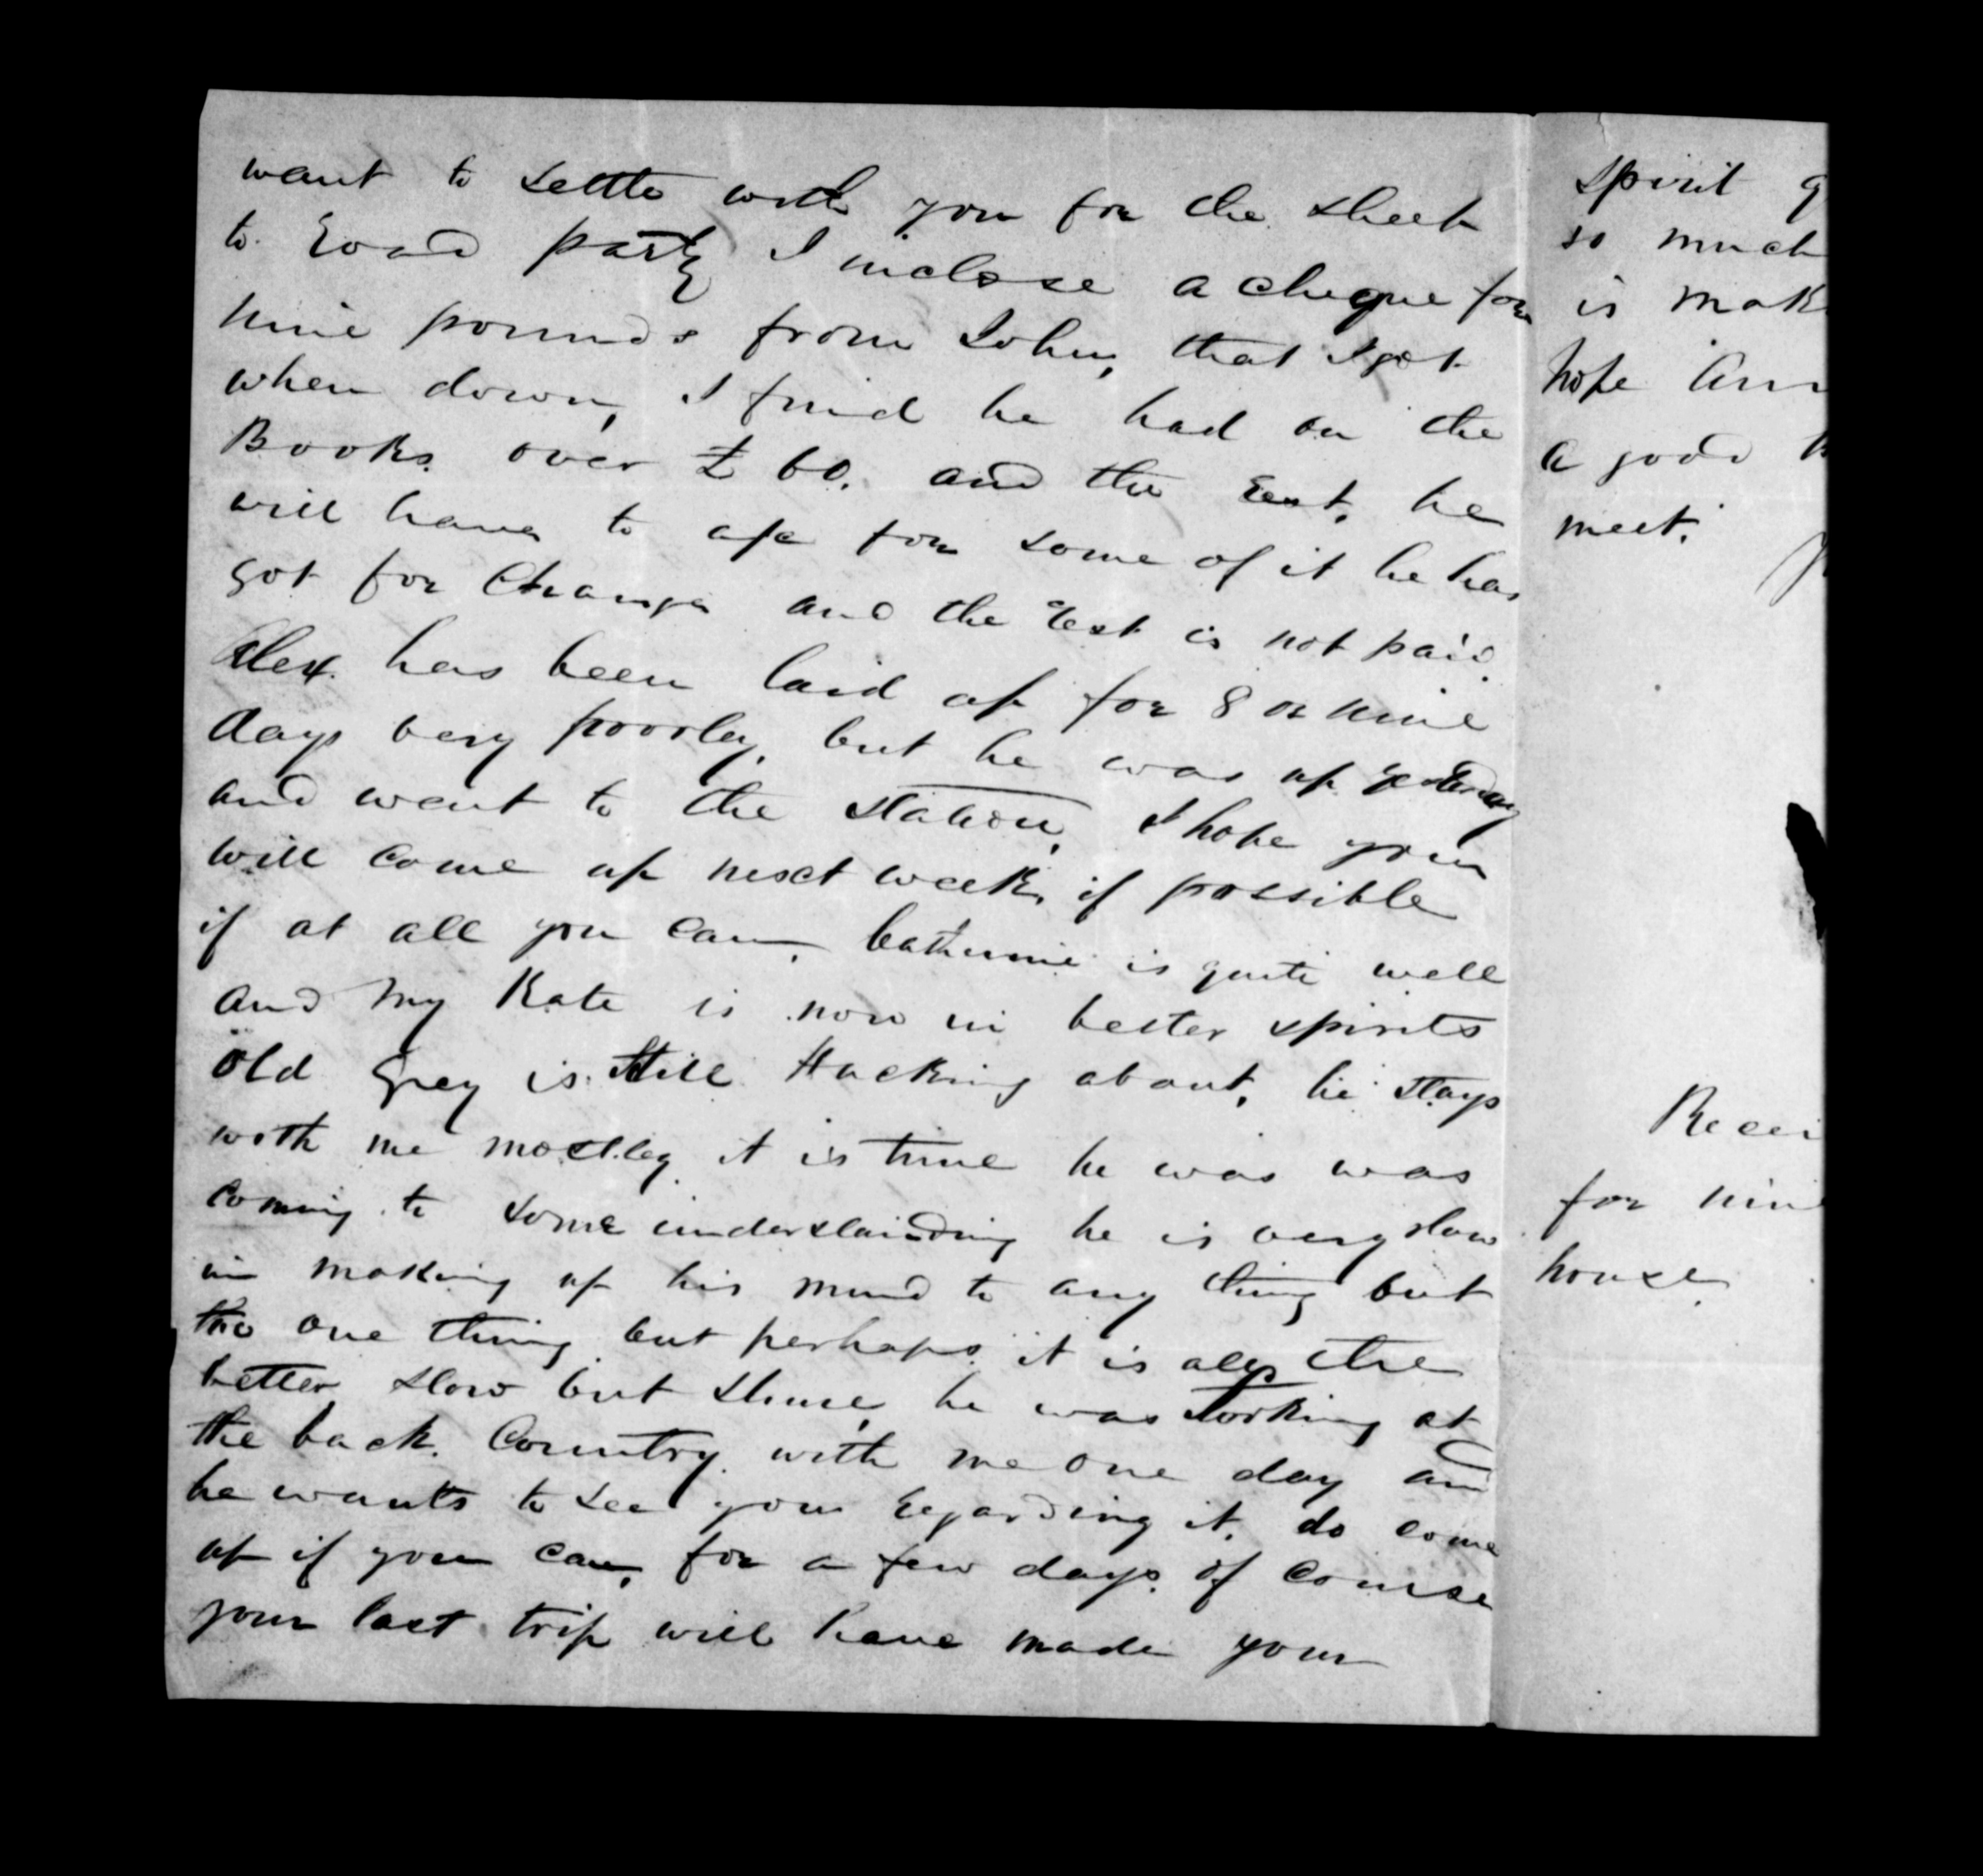 want to settle with you for the sheep
to Road party I inclose a cheque for
nine pounds from John, that I got
when down, I find he had on the
Books over £60. and the rest, he
will have to for some of it he has
got for Change and the rest is not paid.
Alex. has been laid up for 8 or nine
days very poorley, but he was up yesterday
and went to the station, I hope you
will come up next week, if possible
if at all you can, Catherine is quite well
and my Kate is now in better spirits
Old Grey is still Hacking about, he stays
with me mostley it is time he was was
coming to some understanding he is very slow
in making up his mind to any thing but
the one thing but perhaps it is all the
better slow but shure, he was at
the back Country with me one day and
he wants to see you regarding it, do come
up if you can, for a few days. of course
your last trip will have made your
spirit g
so much
is mak
hope Ann
a good
meet.
Recei
for nin
house